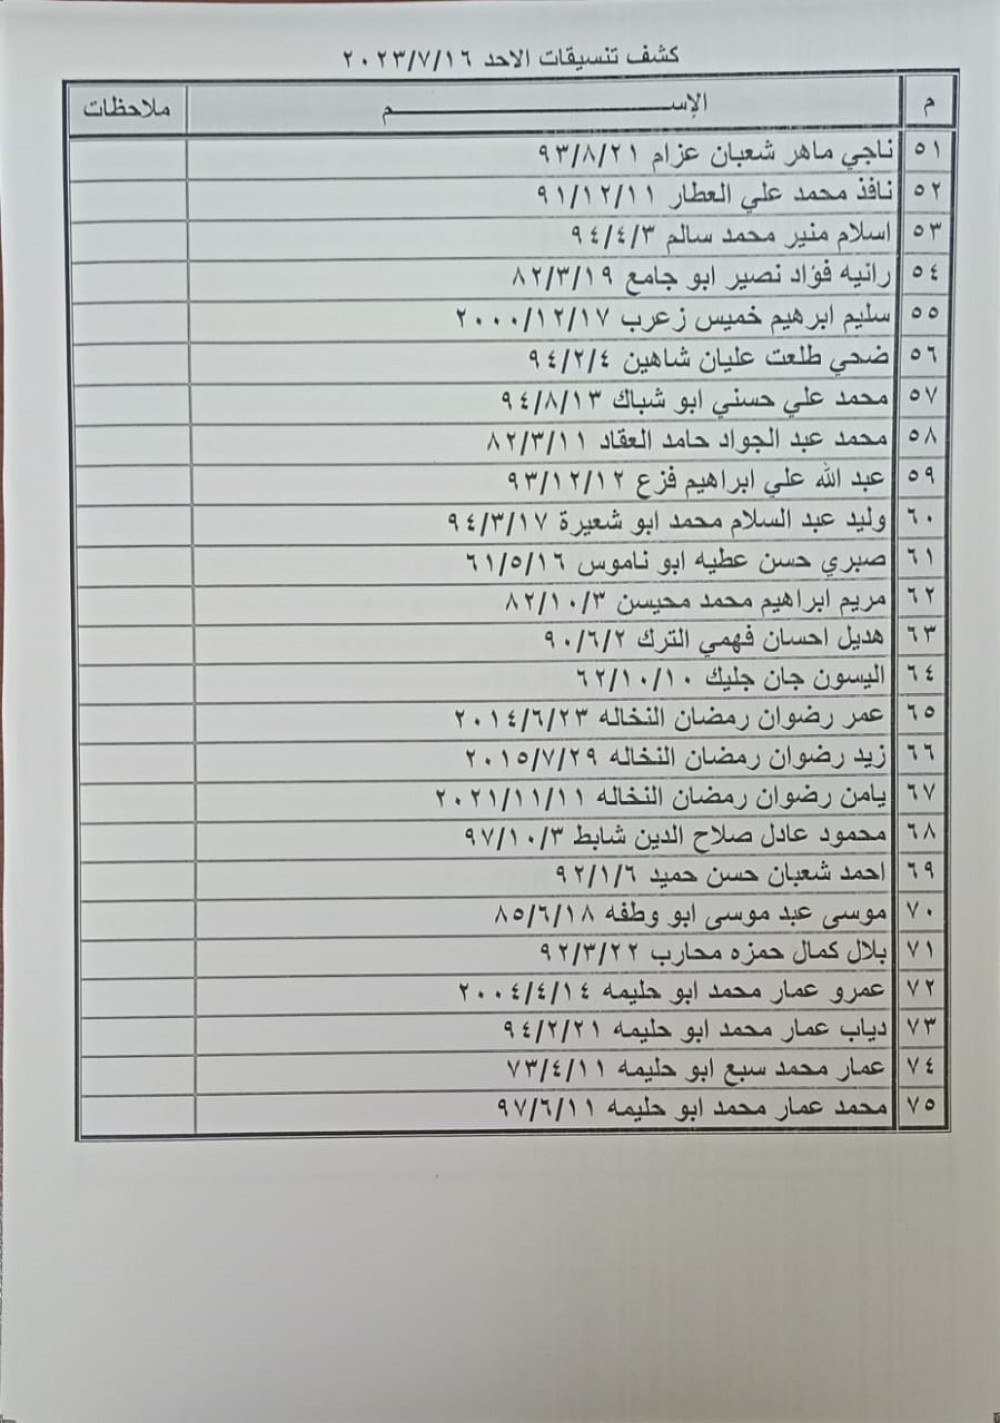 كشف تنسيقات الاحد ٢٠٢٣/٧/١٦
م الإسم ملاحظات
٥١ ناجي ماهر شعبان عزام ٩٣/٨/٢١
٥٢ نافذ محمد علي العطار ٩١/١٢/١١
٥٣ اسلام منير محمد سالم ٩٤/٤/٣
٥٤ رانيه فؤاد نصير ابو جامع ٨٢/٣/١٩
٥٥ سليم ابرهيم خميس زعرب ٢٠٠٠/١٢/١٧
٥٦ ضحي طلعت عليان شاهين ٩٤/٢/٤
٥٧ محمد علي حسني ابو شباك ٩٤/٨/١٣
٥٨ محمد عبد الجواد حامد العقاد ٨٢/٣/١١
٥٩ عبد الله علي ابراهيم فزع ٩٣/١٢/١٢
٦٠ وليد عبد السلام محمد ابو شعيرة ٩٤/٣/١٧
٦١ صبري حسن عطيه ابو ناموس ٦١/٥/١٦
٦٢ مريم ابراهيم محمد محيسن ٨٢/١٠/٣
٦٣ هديل احسان فهمي الترك ٩٠/٦/٢
٦٤ اليسون جان جليك ٦٢/١٠/١٠
٦٥ عمر رضوان رمضان النخاله ٢٠١٤/٦/٢٣
٦٦ زيد رضوان رمضان النخاله ٢٠١٥/٧/٢٩
٦٧ يامن رضوان رمضان النخاله ٢٠٢١/١١/١١
٦٨ محمود عادل صلاح الدين شابط ٩٧/١٠/٣
٦٩ احمد شعبان حسن حميد ٩٢/١/٦
٧٠ موسى عبد موسى ابو وطفه ٨٥/٦/١٨
٧١ بلال كمال حمزه محارب ٩٢/٣/٢٢
٧٢ عمرو عمار محمد ابو حليمه ٢٠٠٤/٤/١٤
٧٣ دياب عمار محمد ابو حليمه ٩٤/٢/٢١
٧٤ عمار محمد سبع ابو حليمه ٧٣/٤/١١
٧٥ محمد عمار محمد ابو حليمه ٩٧/٦/١١